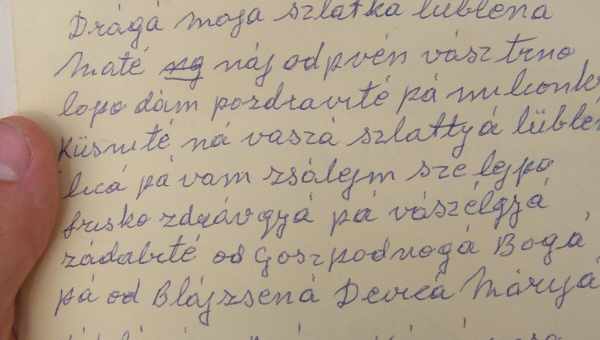 Drágá moja szlatka lüblena
Máté náj odpvén vász trno
lopo dám pozdravité pá
Küsnité ná vaszá szlattyá lüblen
licá pá vam zsálejm sze lejpo
frisko zdrávgyá pá vászélgyá
zádabité od Goszpodnogá Bogá
pá od Blájzsená Devica Márijá